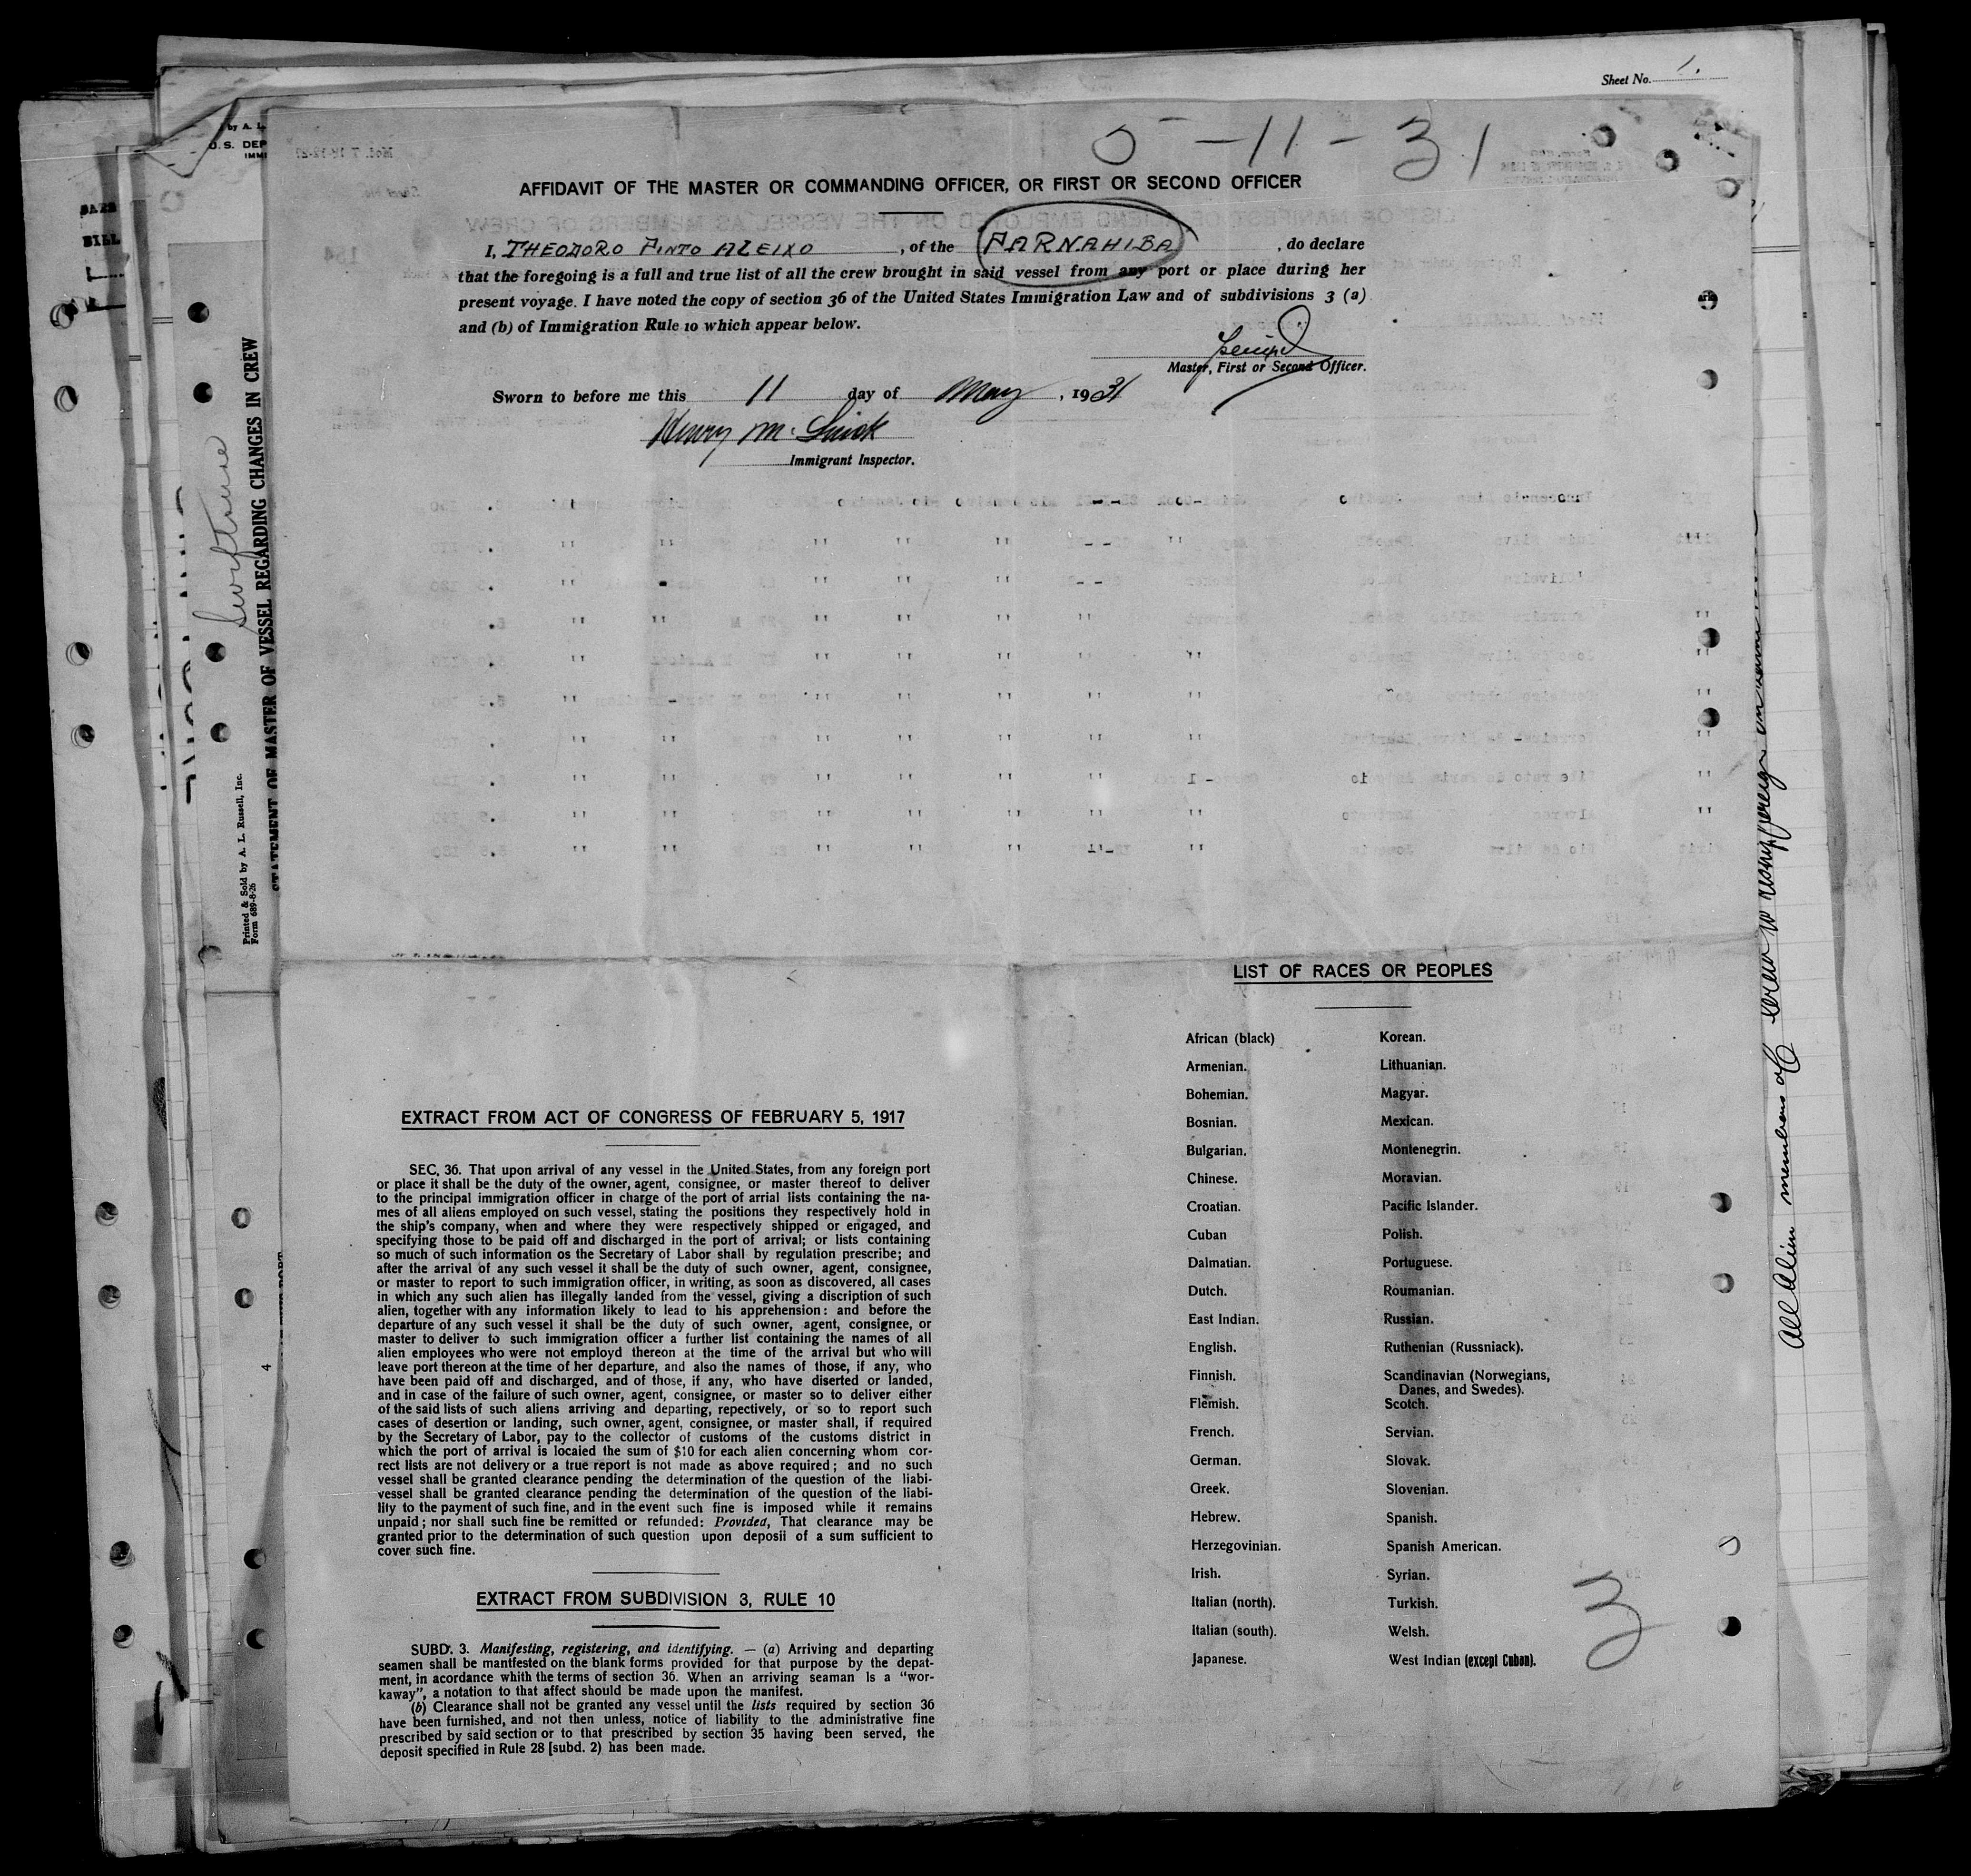 Sheet No. 1.
5-11-31
AFFIDAVIT OF THE MASTER OR COMMANDING OFFICER, OR FIRST OR SECOND OFFICER
I, THEODORO PINTO ALEIXO, of the PARNAHIBA, do declare
that the foregoing is a full and true list of all the crew brought in said vessel from any port or place during her
present voyage. I have noted the copy of section 36 of the United States Immigration Law and of subdivisions 3 (a)
and (b) of Immigration Rule 10 which appear below.
Master, First or Second Officer.
Sworn to before me this 11 day of May, 1931
Henry M.
Immigrant Inspector.
EXTRACT FROM ACT OF CONGRESS OF FEBRUARY 5, 1917
SEC, 36. That upon arrival of any vessel in the United States, from any foreign port
or place it shall be the duty of the owner, agent, consignee, or master thereof to deliver
to the principal immigration officer in charge of the port of arrial lists containing the na-
mes of all aliens employed on such vessel, stating the positions they respectively hold in
the ship's company, when and where they were respectively shipped or engaged, and
specifying those to be paid off and discharged in the port of arrival; or lists containing
so much of such information os the Secretary of Labor shall by regulation prescribe; and
after the arrival of any such vessel it shall be the duty of such owner, agent, consignee,
or master to report to such immigration officer, in writing, as soon as discovered, all cases
in which any such alien has illegally landed from the vessel, giving a discription of such
alien, together with any information likely to lead to his apprehension: and before the
departure of any such vessel it shall be the duty of such owner, agent, consignee, or
master to deliver to such immigration officer a further list containing the names of all
alien employees who were not employd thereon at the time of the arrival but who will
leave port thereon at the time of her departure, and also the names of those, if any, who
have been paid off and discharged, and of those, if any, who have diserted or landed,
and in case of the failure of such owner, agent, consignee, or master so to deliver either
of the said lists of such aliens arriving and departing, repectively, or so to report such
cases of desertion or landing, such owner, agent, consignee, or master shall, if required
by the Secretary of Labor, pay to the collector of customs of the customs district in
which the port of arrival is locaied the sum of $10 for each alien concerning whom cor-
rect lists are not delivery or a true report is not made as above required; and no such
vessel shall be granted clearance pending the determination of the question of the liabi-
vessel shall be granted clearance pending the determination of the question of the liabi-
lity to the payment of such fine, and in the event such fine is imposed while it remains
unpaid; nor shall such fine be remitted or refunded: Provided, That clearance may be
granted prior to the determination of such question upon deposii of a sum sufficient to
cover such fine.
EXTRACT FROM SUBDIVISION 3, RULE 10
SUBD. 3. Manifesting, registering, and identifying. — (a) Arriving and departing
seamen shall be mantfested on the blank forms provided for that purpose by the depat-
ment, in acordance whith the terms of section 36. When an arriving seaman is a "wor-
kaway", a notation to that affect should be made upon the manifest.
(b) Clearance shall not be granted any vessel until the lists required by section 36
have been furnished, and not then unless, notice of liability to the administrative fine
prescribed by said section or to that prescribed by section 35 having been served, the
deposit specified in Rule 28 [subd. 2) has been made.
LIST OF RACES OR PEOPLES
African (black)
Armenian.
Bohemian.
Bosnian.
Bulgarian.
Chinese.
Croatian.
Cuban
Dalmatian.
Dutch.
East Indian.
English.
Finnish.
Flemish.
French.
German.
Greek.
Hebrew.
Herzegovinian.
Irish.
Italian (north).
Italian (south).
Japanese.
Korean.
Lithuanian.
Magyar.
Mexican.
Montenegrin.
Moravian.
Pacific Islander.
Polish.
Portuguese.
Roumanian.
Russian.
Ruthenian (Russniack).
Scandinavian (Norwegians,
Danes, and Swedes).
Scotch.
Servian.
Slovak.
Slovenian.
Spanish.
Spanish American.
Syrian.
Turkish.
Welsh.
West Indian (except Cuban).
3
by A. L.
U.S. DEP
IMMI
BILL
STATEMENT OF MASTER OF VESSEL REGARDING CHANGES IN CREW
Printed & Sold by A. L. Russell, Inc.
Form 689-8-26
4
All Alien members of crew